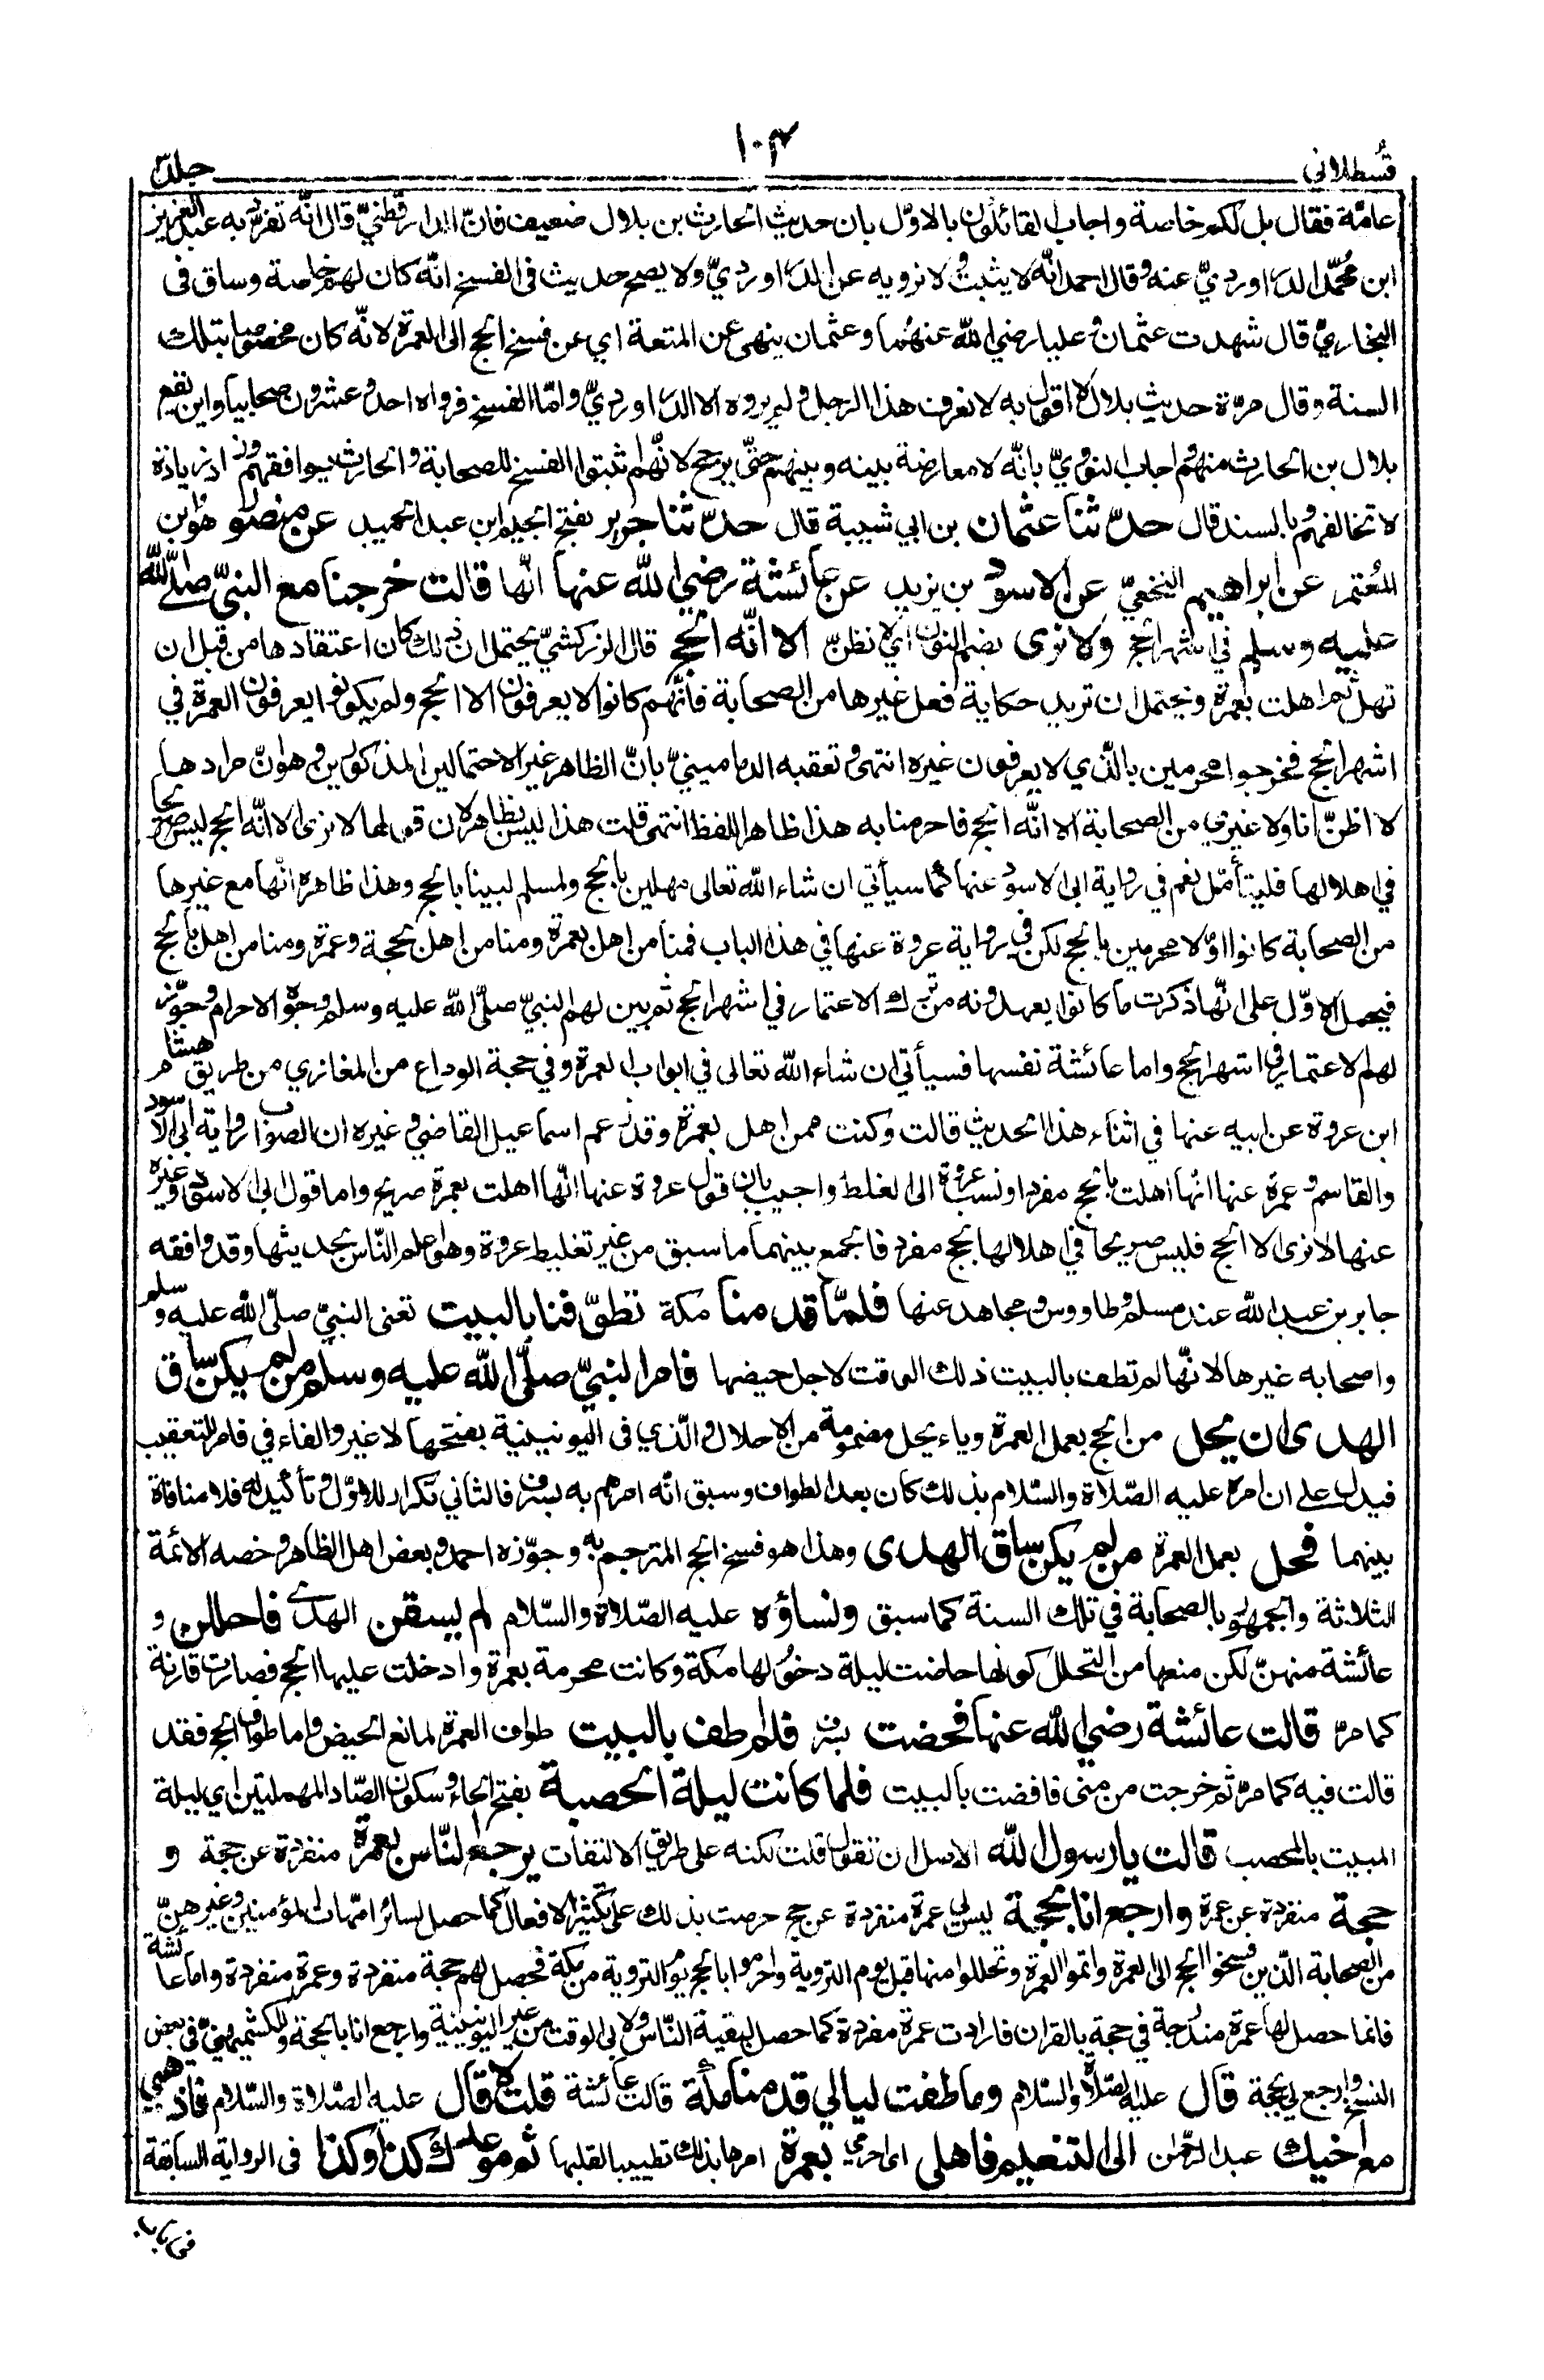 ١٠٣
قسطلانی
جلد٣
عامّة فقال بل لكم خاصة واجاب القائلون بالاوّل بان حديث الحارث بن بلال ضعيف فانّ الدارقطنيّ قال انّه تفرّد به عبد العزيز
ابن محمّد الدراورديّ عنه وقال احمد انّه لا يثبت ولا نرويه عن الدراورديّ ولا يصح حديث فى الفسخ انّه كان لهم خاصة وساق فى
البخاريّ قال شهدت عثمان وعليا رضي الله عنهما وعثمان ينهى عن المتعة اي عن فسخ الحج الى العمرة لانّه كان مخصوصا بتلك
السنة وقال مرّة حديث بلال لا اقول به لا نعرف هذا الرجل ولم يروه الا الدراورديّ وامّا الفسخ فرواه احد وعشرون صحابيا واين يقع
بلال بن الحارث منهم واجاب النوويّ بانّه لا معارضة بينه وبينهم حتّى يرجح لانّهم اثبتوا الفسخ للصحابة والحارث يوافقهم وزاد زيادة
لا تخالفهم وبالسند قال حدّثنا عثمان بن ابي شيبة قال حدّثنا جرير بفتح الجيم ابن عبد الحميد عن منصور هو ابن
المعتمر عن ابراهيم النخعيّ عن الاسود بن يزيد عن عائشة رضي الله عنها انّها قالت خرجنا مع النبيّ صلّى الله
عليه وسلم في اشهر الحج ولا نرى بضم النون اي لا نظنّ الا انّه الحج قال الزركشيّ يحتمل ان ذلك كان اعتقادها من قبل ان
تهل ثم اهلت بعمرة ويحتمل ان تريد حكاية فعل غيرها من الصحابة فانّهم كانوا لا يعرفون الا الحج ولم يكونوا يعرفون العمرة في
اشهر الحج فخرجوا محرمين بالّذي لا يعرفون غيره انتهى وتعقبه الدمامينيّ بانّ الظاهر غير الاحتمالين المذكورين وهو انّ مرادها
لا اظنّ انا ولا غيري من الصحابة الا انّه الحج فاحرمنا به هذا ظاهر اللفظ انتهى قلت هذا ليس بظاهر لان قولها لا نرى الا انّه الحج ليس صريحا
في اهلالها فليتأمّل نعم في رواية ابى الاسود عنها كما سيأتي ان شاء الله تعالى مهلين بالحج ولمسلم لبينا بالحج وهذا ظاهره انّها مع غيرها
من الصحابة كانوا اوّلا محرمين بالحج لكن في رواية عروة عنها في هذا الباب فمنا من اهل بعمرة ومنا من اهل بحجة وعمرة ومنا من اهل بالحج
فيحمل الاوّل على انّها ذكرت ما كانوا يعهدونه من ترك الاعتمار في اشهر الحج ثم بين لهم النبيّ صلّى الله عليه وسلم وجوه الاحرام وجوّز
لهم الاعتمار في اشهر الحج واما عائشة نفسها فسيأتي ان شاء الله تعالى في ابواب العمرة وفي حجة الوداع من المغازي من طريق هشام
ابن عروة عن ابيه عنها في اثناء هذا الحديث قالت وكنت ممن اهل بعمرة وقد زعم اسماعيل القاضي وغيره ان الصواب رواية ابى الاسود
والقاسم وعمرة عنها انّها اهلت بالحج مفردا ونسب عروة الى الغلط واجيب بان قول عروة عنها انّها اهلت بعمرة صريح واما قول ابى الاسود وغيره
عنها لا نرى الا الحج فليس صريحا في اهلالها بحج مفرد فالجمع بينهما ما سبق من غير تغليط عروة وهو اعلم النّاس بحديثها وقد وافقه
جابر بن عبد الله عند مسلم وطاووس ومجاهد عنها فلمّا قدمنا مكة تطوّفنا بالبيت تعنى النبيّ صلّى الله عليه وسلم
واصحابه غيرها لانّها لم تطف بالبيت ذلك الوقت لاجل حيضها فامر النبيّ صلّى الله عليه وسلم من لم يكن ساق
الهدى ان يحل من الحج بعمل العمرة وياء يحل مضمومة من الاحلال والّذي فى اليونينية بفتحها لا غير والفاء في فامر للتعقيب
فيدل على ان امره عليه الصّلاة والسّلام بذلك كان بعد الطواف وسبق انّه امرهم به بسرف فالثاني تكرار للاوّل وتأكيد له فلا منافاة
بينهما فحل بعمل العمرة من لم يكن ساق الهدى وهذا هو فسخ الحج المترجم به وجوّزه احمد وبعض اهل الظاهر وخصه الائمة
الثلاثة والجمهور بالصحابة في تلك السنة كما سبق ونساؤه عليه الصّلاة والسّلام لم يسقن الهدي فاحللن و
عائشة منهنّ لكن منعها من التحلل كونها حاضت ليلة دخولها مكة وكانت محرمة بعمرة وادخلت عليها الحج فصارت قارنة
كما مرّ قالت عائشة رضي الله عنها فحضت بسرف فلم اطف بالبيت طواف العمرة لمانع الحيض واما طواف الحج فقد
قالت فيه كما مرّ ثم خرجت من منى فافضت بالبيت فلما كانت ليلة الحصبة بفتح الحاء وسكون الصّاد المهملتين اي ليلة
المبيت بالمحصب قالت يا رسول الله الاصل ان تقول قلت لكنه على طريق الالتفات يرجع النّاس بعمرة منفردة عن حجة و
حجة منفردة عن عمرة وارجع انا بحجة ليس لي عمرة منفردة عن حج حرصت بذلك على تكثير الافعال كما حصل لسائر امّهات المؤمنين وغيرهنّ
من الصحابة الّذين فسخوا الحج الى العمرة واتموا العمرة وتحللوا منها قبل يوم التروية واحرموا بالحج يوم التروية من مكة فحصل لهم حجة منفردة وعمرة منفردة واما عائشة
فانما حصل لها عمرة مندرجة في حجة بالقران فارادت عمرة مفردة كما حصل لبقية النّاس ولابى الوقت من غير اليونينية وارجع انا بالحجة وللكشميهنيّ فى بعض
النسخ وارجع لي بحجة قال عليه الصّلاة والسّلام وما طفت ليالي قدمنا مكة قالت عائشة قلت لا قال عليه الصّلاة والسّلام فاذهبي
مع اخيك عبد الرّحمن الى التنعيم فاهلى اى احرمي بعمرة امرها بذلك تطييبا لقلبها ثم موعدك كذا وكذا فى الرواية السابقة